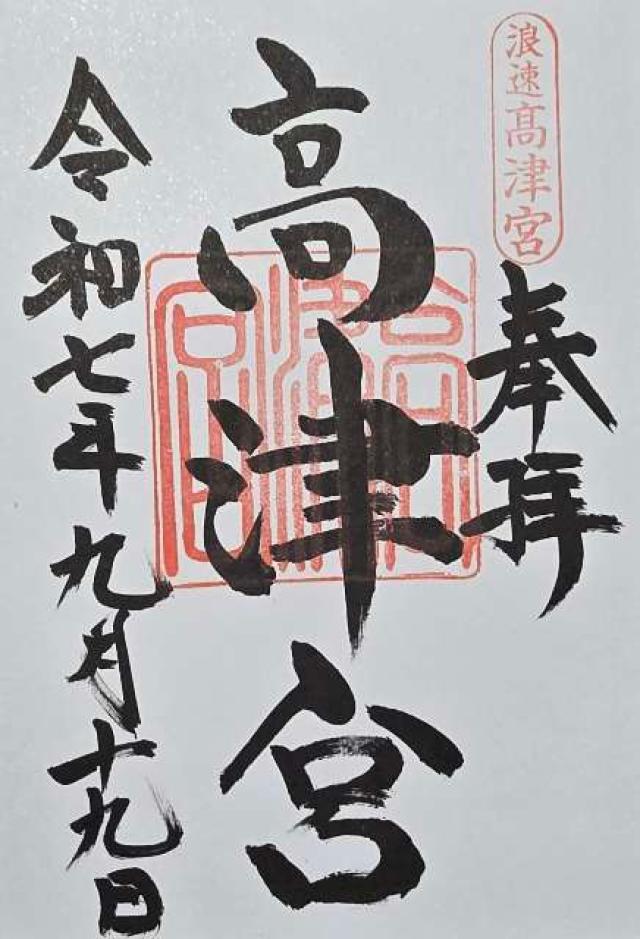 浪速高津宮
奉拝
高津宮
令和七年九月十九日